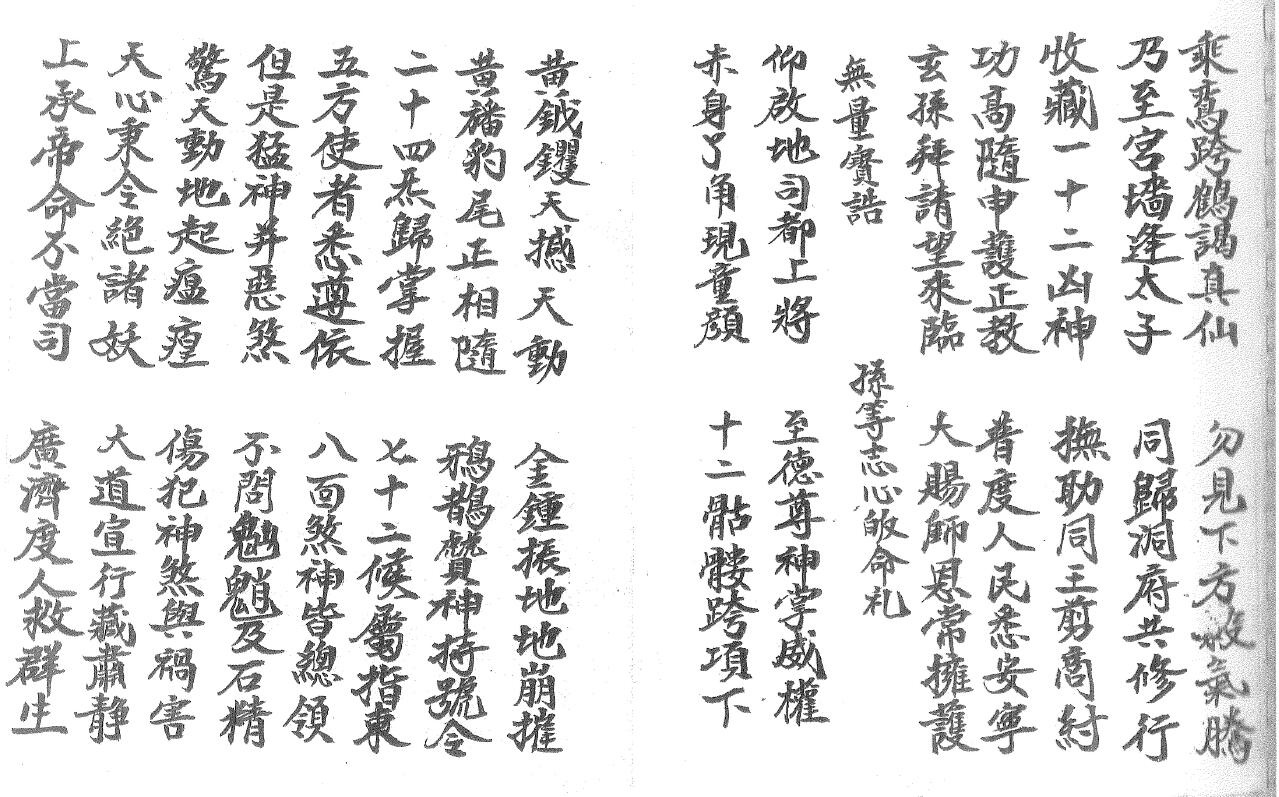 乘鸞跨鶴謁真仙　勿見下方殺氣騰
乃至宮墻逢太子　同歸洞府共修行
收藏一十二凶神　撫助同王剪商紂
功高隨申護正教　普度人民悉安寧
玄孫拜請望來臨　大賜師恩常擁護
無量寶誥　孫等志心皈命礼
仰啟地司都上將　至德尊神掌威權
赤身丫角現童顏　十二骷髏跨項下
黃鉞钁天撼天動　金鍾振地地崩摧
黃旛豹尾正相隨　鴉鵲贊神持號令
二十四炁歸掌握　七十二候屬指東
五方使者悉遵依　八面煞神皆總領
但是猛神并惡煞　不問魑魈及石精
驚天動地起瘟㾮　傷犯神煞與禍害
天心秉令絕諸妖　大道宣行藏肅静
上承帝命不當司　廣濟度人救群生